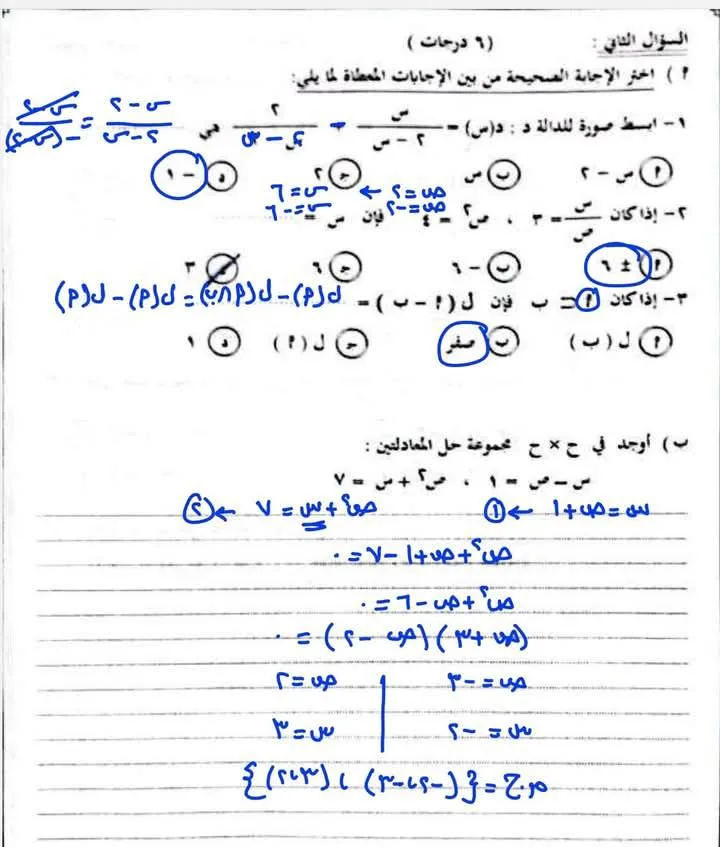 السؤال الثاني : (٦ درجات)
٢) اختر الإجابة الصحيحة من بين الإجابات المعطاة لما يلي:
١- ابسط صورة للدالة د : د(س) = س / (س - ٢) - ٢ / (س - ٢) هي (س - ٢) / (٢ - س) = (س - ٢) / -(س - ٢)
أ س - ٢ ب س ج ٢ د - ١
ص = ٢ ← س = ٦
ص = -٢ س = -٦
٢- إذا كان س / ص = ٣ ، ص² = ٤ فإن س =
أ ± ٦ ب - ٦ ج ٦ د ٣
٣- إذا كان أ ⊂ ب فإن ل ( أ - ب ) = ل(أ) - ل(أ∩ب) = ل(أ) - ل(أ)
أ ل (ب) ب صفر ج ل (أ) د ١
ب) أوجد في ح × ح مجموعة حل المعادلتين :
س - ص = ١ ، ص² + س = ٧
س = ص + ١ ← ① ص² + س = ٧ ← ②
ص² + ص + ١ - ٧ = ٠
ص² + ص - ٦ = ٠
(ص + ٣) (ص - ٢) = ٠
ص = -٣ ص = ٢
س = -٢ س = ٣
م.ح = {(-٢، -٣) ، (٣، ٢)}